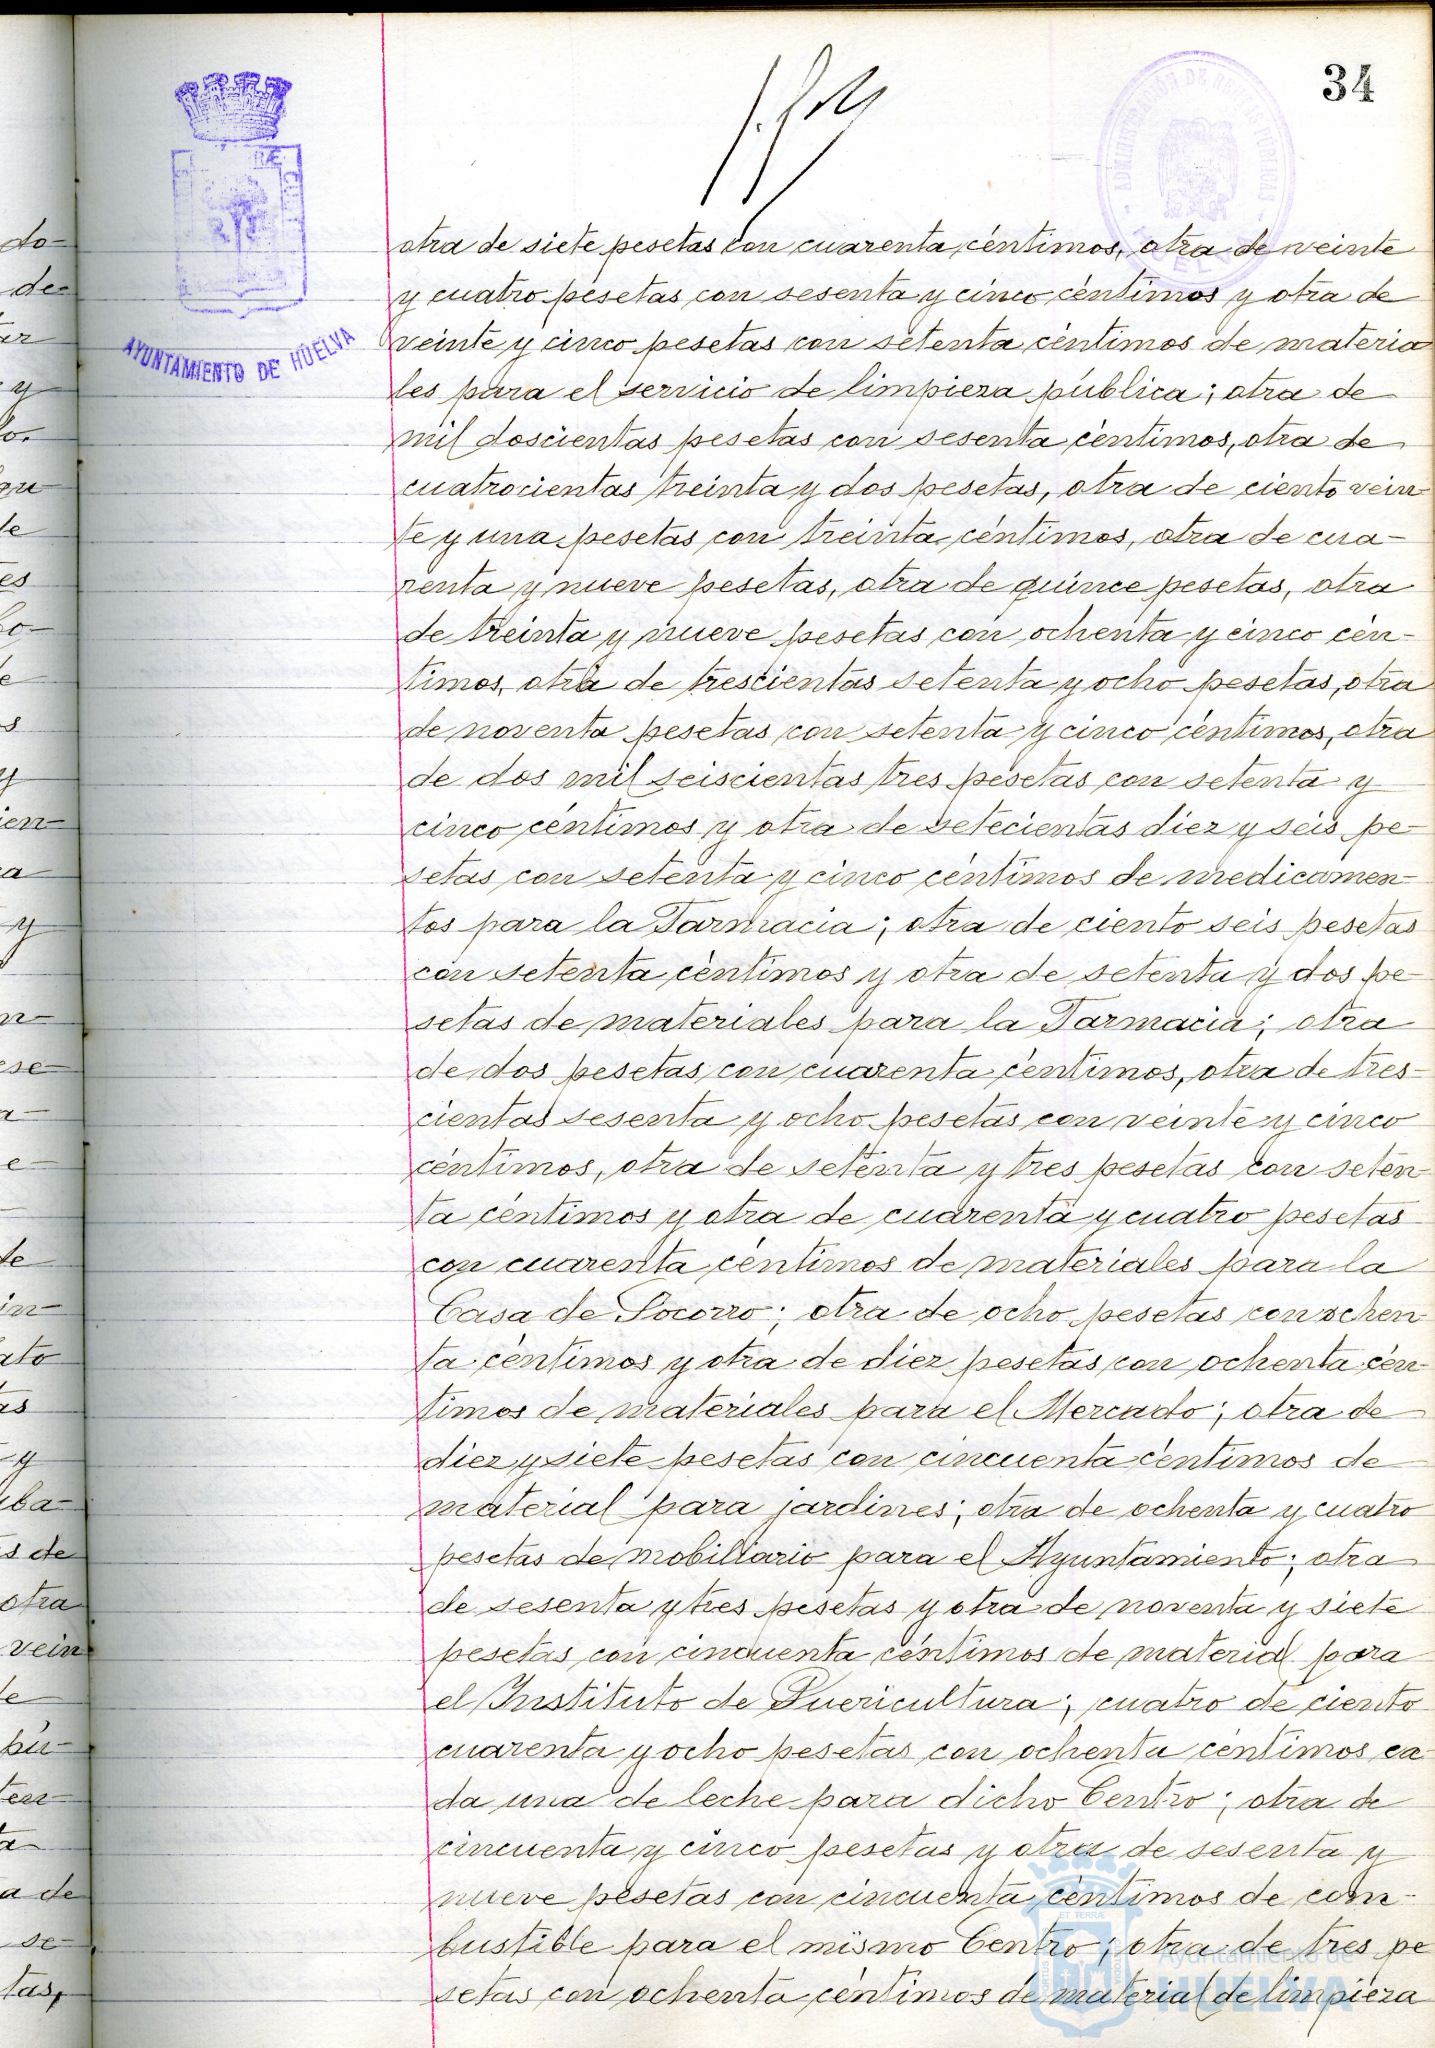 34
AYUNTAMIENTO DE HUELVA
ADMINISTRACIÓN DE RENTAS PÚBLICAS
otra de siete pesetas con cuarenta céntimos, otra de veinte
y cuatro pesetas con sesenta y cinco céntimos y otra de
veinte y cinco pesetas con setenta céntimos de materia
les para el servicio de limpieza pública; otra de
mil doscientas pesetas con sesenta céntimos, otra de
cuatrocientas treinta y dos pesetas, otra de ciento vein
te y una pesetas con treinta céntimos, otra de cua-
renta y nueve pesetas, otra de quince pesetas, otra
de treinta y nueve pesetas con ochenta y cinco cén-
timos, otra de trescientas setenta y ocho pesetas, otra
de noventa pesetas con setenta y cinco céntimos, otra
de dos mil seiscientas tres pesetas con setenta y
cinco céntimos y otra de setecientas diez y seis pe-
setas con setenta y cinco céntimos de medicamen-
tos para la Farmacia; otra de ciento seis pesetas
con setenta céntimos y otra de setenta y dos pe-
setas de materiales para la Farmacia; otra
de dos pesetas con cuarenta céntimos, otra de tres-
cientas sesenta y ocho pesetas con veinte y cinco
céntimos, otra de setenta y tres pesetas con seten-
ta céntimos y otra de cuarenta y cuatro pesetas
con cuarenta céntimos de materiales para la
Casa de Socorro; otra de ocho pesetas con ochen
ta céntimos y otra de diez pesetas con ochenta cén-
timos de materiales para el Mercado; otra de
diez y siete pesetas con cincuenta céntimos de
material para jardines; otra de ochenta y cuatro
pesetas de mobiliario para el Ayuntamiento; otra
de sesenta y tres pesetas y otra de noventa y siete
pesetas con cincuenta céntimos de material para
el Instituto de Puericultura; cuatro de ciento
cuarenta y ocho pesetas con ochenta céntimos ca-
da una de leche para dicho Centro; otra de
cincuenta y cinco pesetas y otra de sesenta y
nueve pesetas con cincuenta céntimos de com-
bustible para el mismo Centro; otra de tres pe
setas con ochenta céntimos de material de limpieza
Ayuntamiento de
HUELVA